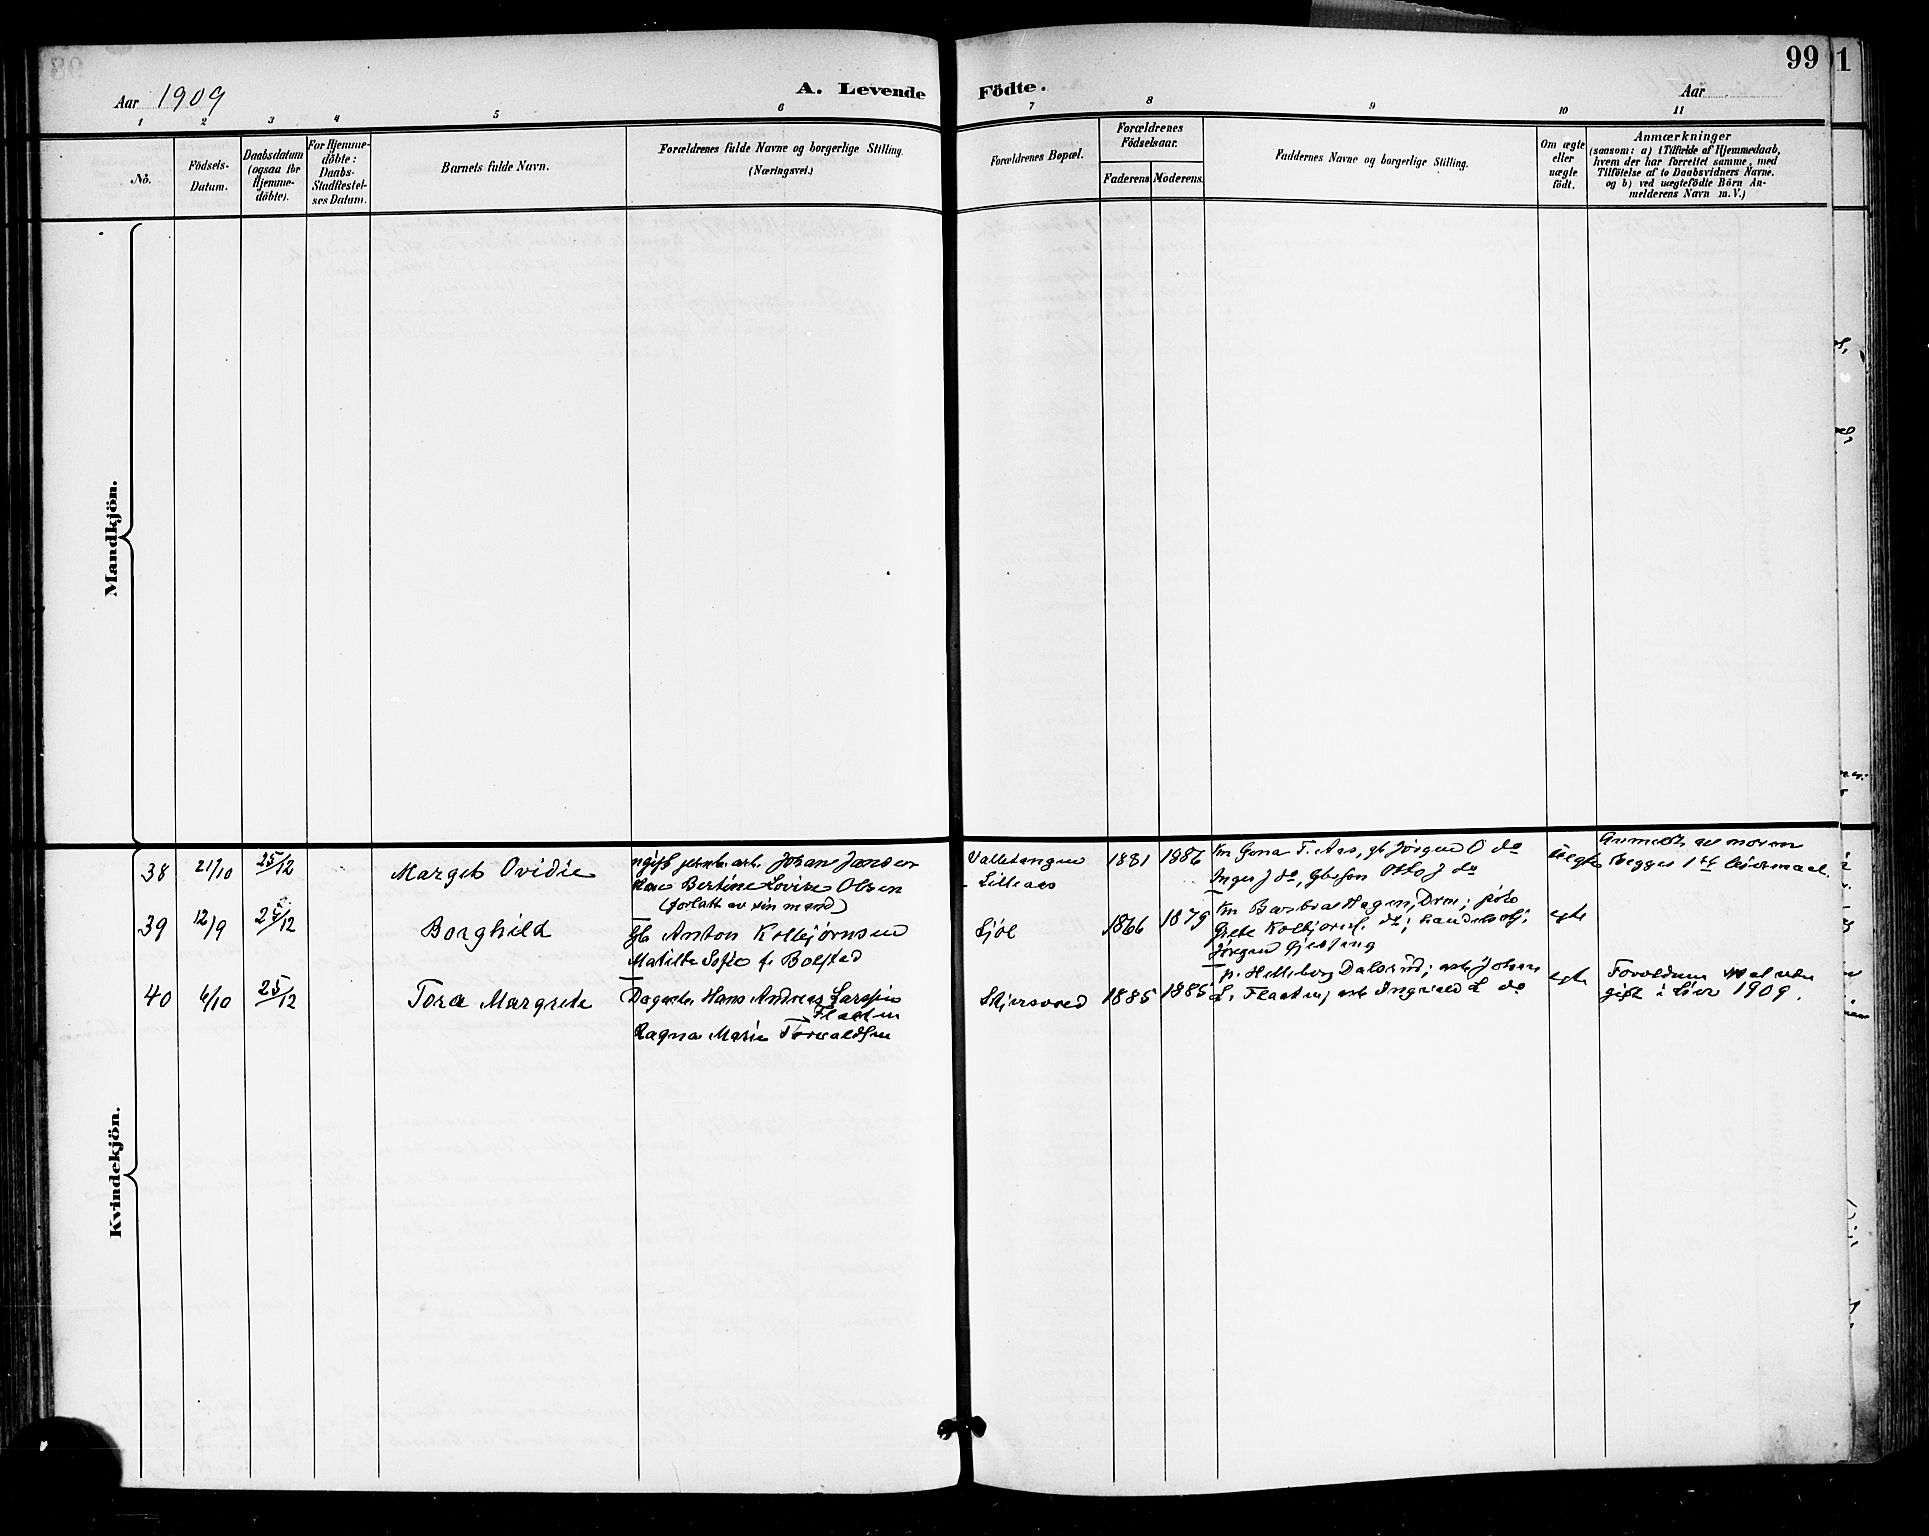 99
1
Aar 1909
A. Levende Födte.
Aar
1 2 3 4 5 6 7 8 9 10 11
No.
Födsels-
Datum.
Daabsdatum
(ogsaa for
Hjemme-
döbte).
For Hjemme-
döbte:
Daabs-
Stadfæstel-
ses Datum.
Barnets fulde Navn.
Forældrenes fulde Navne og borgerlige Stilling.
(Næringsvei.)
Forældrenes Bopæl.
Forældrenes
Födselsaar.
Faderens. Moderens.
Faddernes Navne og borgerlige Stilling.
Om ægte
eller
uægte
födt.
Anmærkninger
(saasom: a) i Tilfælde af Hjemmedaab,
hvem der har forrettet samme, med
Tilföielse af to Daabsvidners Navne.
og b) ved uægtefödte Börn An-
melderens Navn m. V.)
Mandkjön.
Kvindekjön.
38 21/10 25/12
Margit Ovidie
ugift arb. Johan Jansen
Bertine Lovise Olsen
(forlatt av sin mand)
Valletangen
Lilleaas
1881 1886
Km Gona T. Aas, gb Jørgen O do
Inger J do, Gbesøn Otto J do
Uegte
Anmeldt av moren
Begges 1ste leiermaal.
39 12/9 25/12
Borghild
Gb Anton Kolbjørnsen
Matilde Sofie f. Bolstad
Sjøl
1866 1879
Km Barbra Hagen, Drm; pike
Grete Kolbjørns. do; handelsbtj.
Jørgen Gjessing
egte
40 4/10 25/12
Tora Margrete
Dagarb. Hans Andreas Larssen
Flaaten
Ragna Marie Torvaldsen
Skjersvoed
1885 1885
p. Helleborg Dalsrud; arb Johan
L. Flaaten; arb Ingvald L do
egte
Forældrene
gift i Lier 1909.